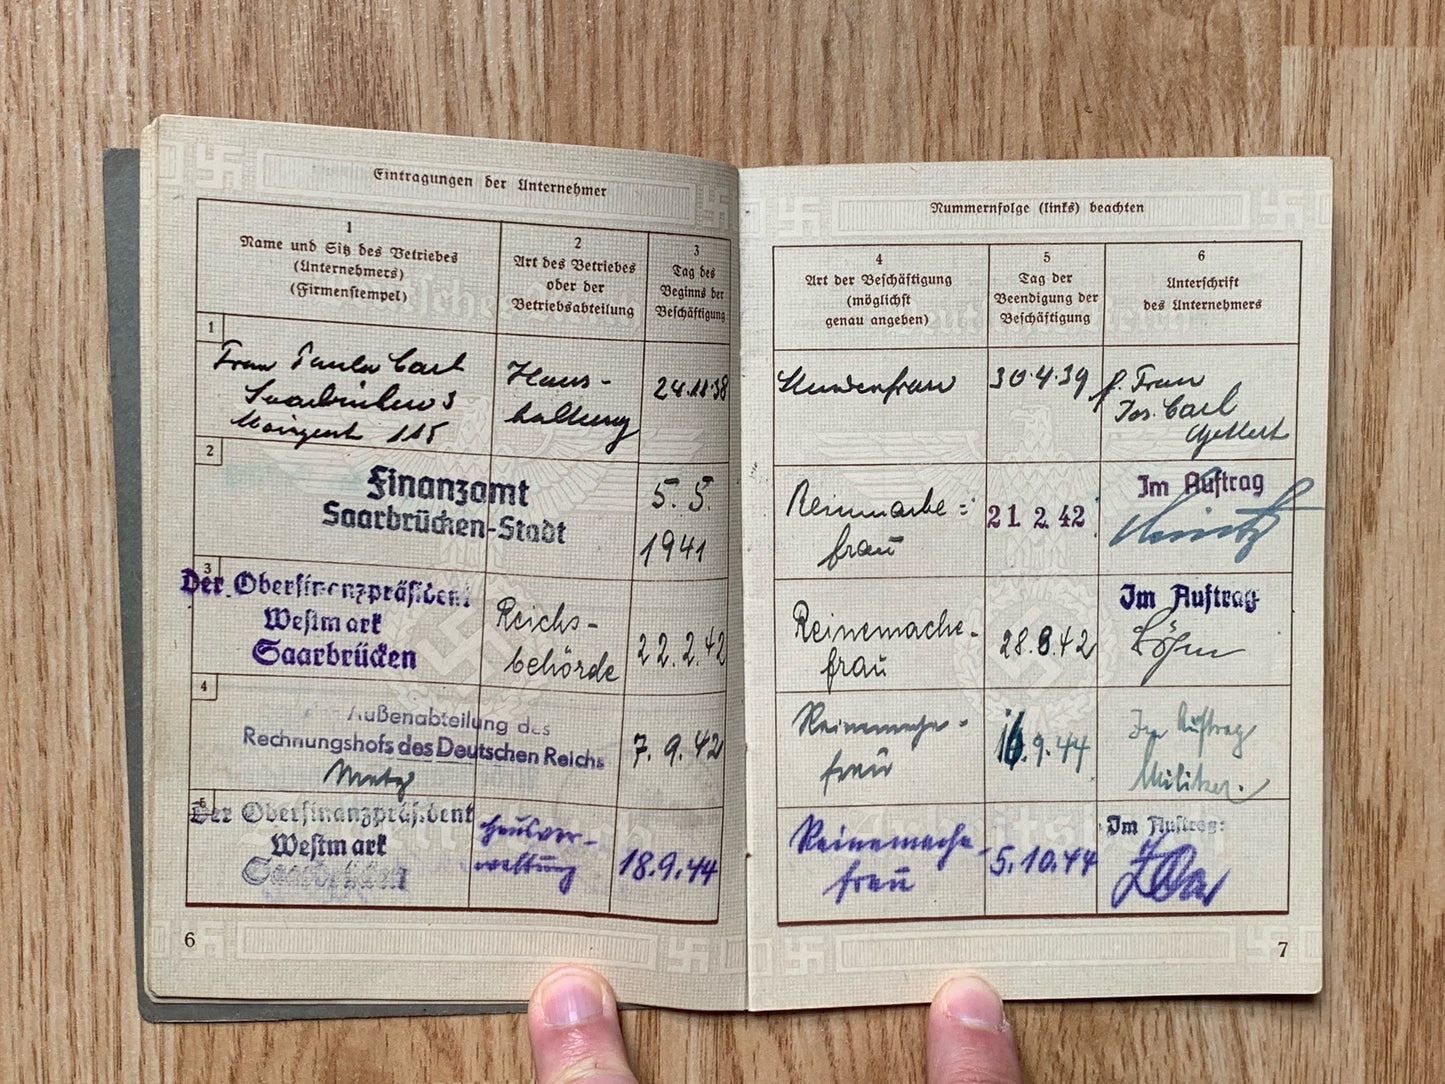 Eintragungen der Unternehmer
1
Name und Sitz des Betriebes
(Unternehmers)
(Firmenstempel)
2
Art des Betriebes
oder der
Betriebsabteilung
3
Tag des
Beginns der
Beschäftigung
1
Frau Paula Carl
Saarbrücken 3
115
Haus-
haltung
24.11.38
2
Finanzamt
Saarbrücken-Stadt
5. 5.
1941
3
Der Oberfinanzpräsident
Westmark
Saarbrücken
Reichs-
behörde
22.2.42
4
Außenabteilung des
Rechnungshofs des Deutschen Reichs
Metz
7. 9. 42
5
Der Oberfinanzpräsident
Westmark
Saarbrücken
Hausver-
waltung
18.9.44
6
Nummernfolge (links) beachten
4
Art der Beschäftigung
(möglichst
genau angeben)
5
Tag der
Beendigung der
Beschäftigung
6
Unterschrift
des Unternehmers
Stundenfrau
30.4.39
f. Frau
Jos. Carl
frau
21. 2. 42
Im Auftrag
Reinemache-
frau
28.8.42
Im Auftrag
Reinemache-
frau
16.9.44
Im Auftrag
Reinemache-
frau
5.10.44
Im Auftrag:
7